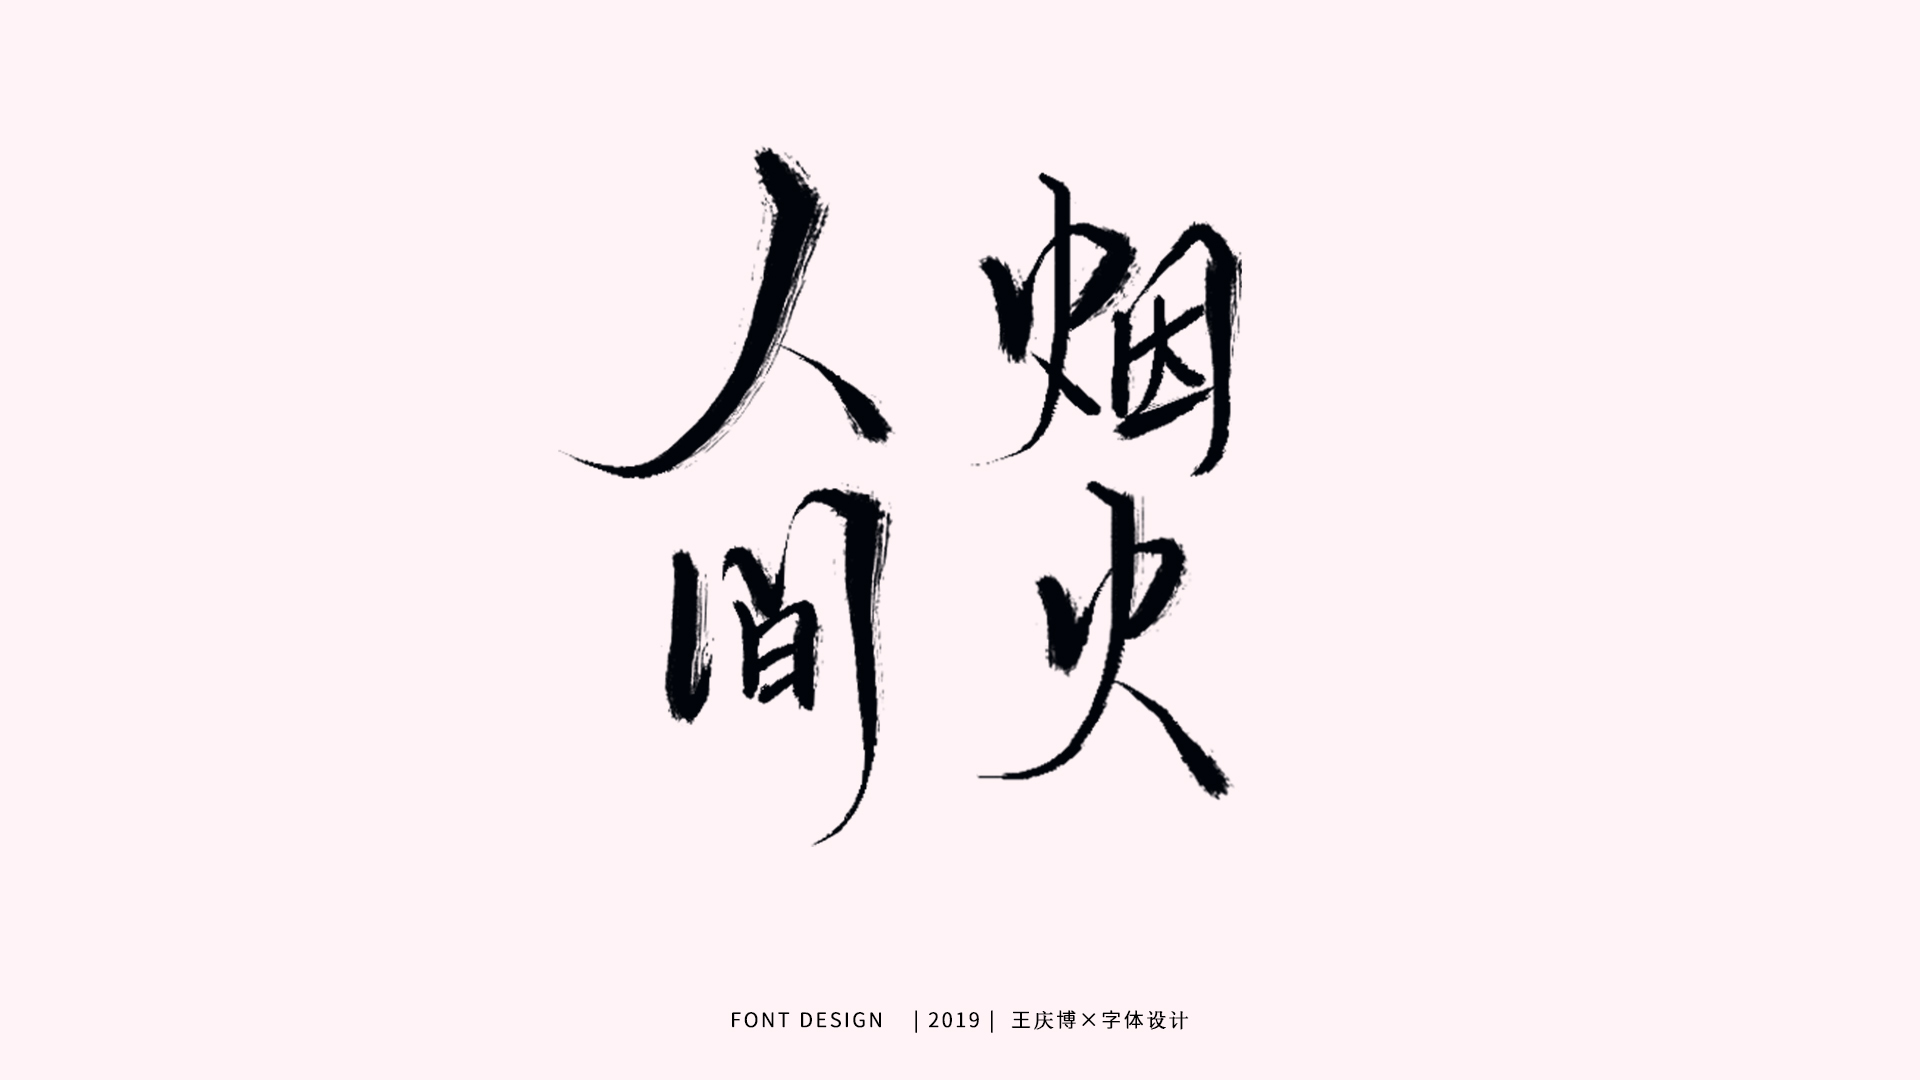 人间
烟火
FONT DESIGN | 2019 | 王庆博×字体设计